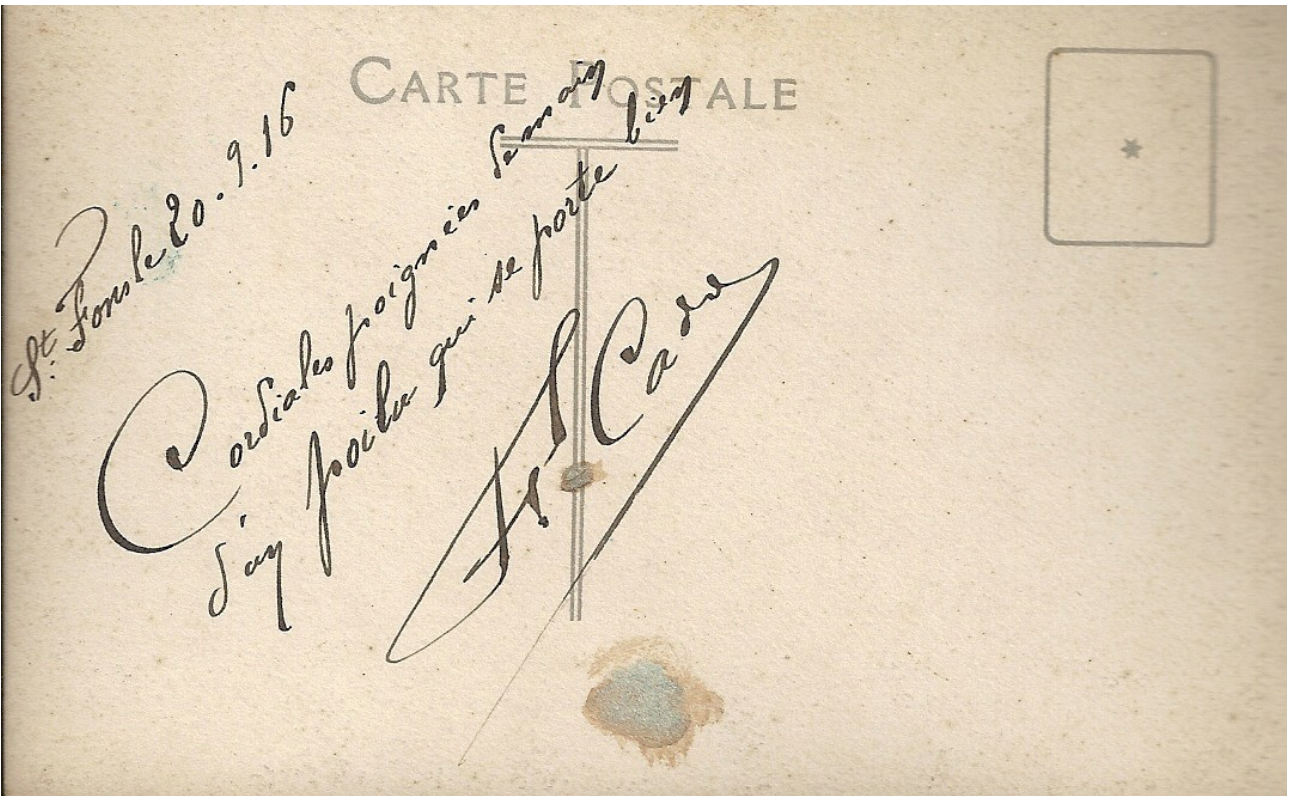 CARTE POSTALE
St. Fons le 20.9.16
Cordiales poignées de main
d'un poilu qui se porte bien